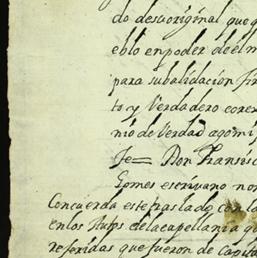 do desu original que q
eblo en poder de el m
para su balidacion fir
to y Verdadero coren
nio de Verdad agomi
fe= Don Fransisc
Gomes escrivano nom
Concuerda este traslado con la
en los Autos de la capellania q
referidas que fueron de Capita